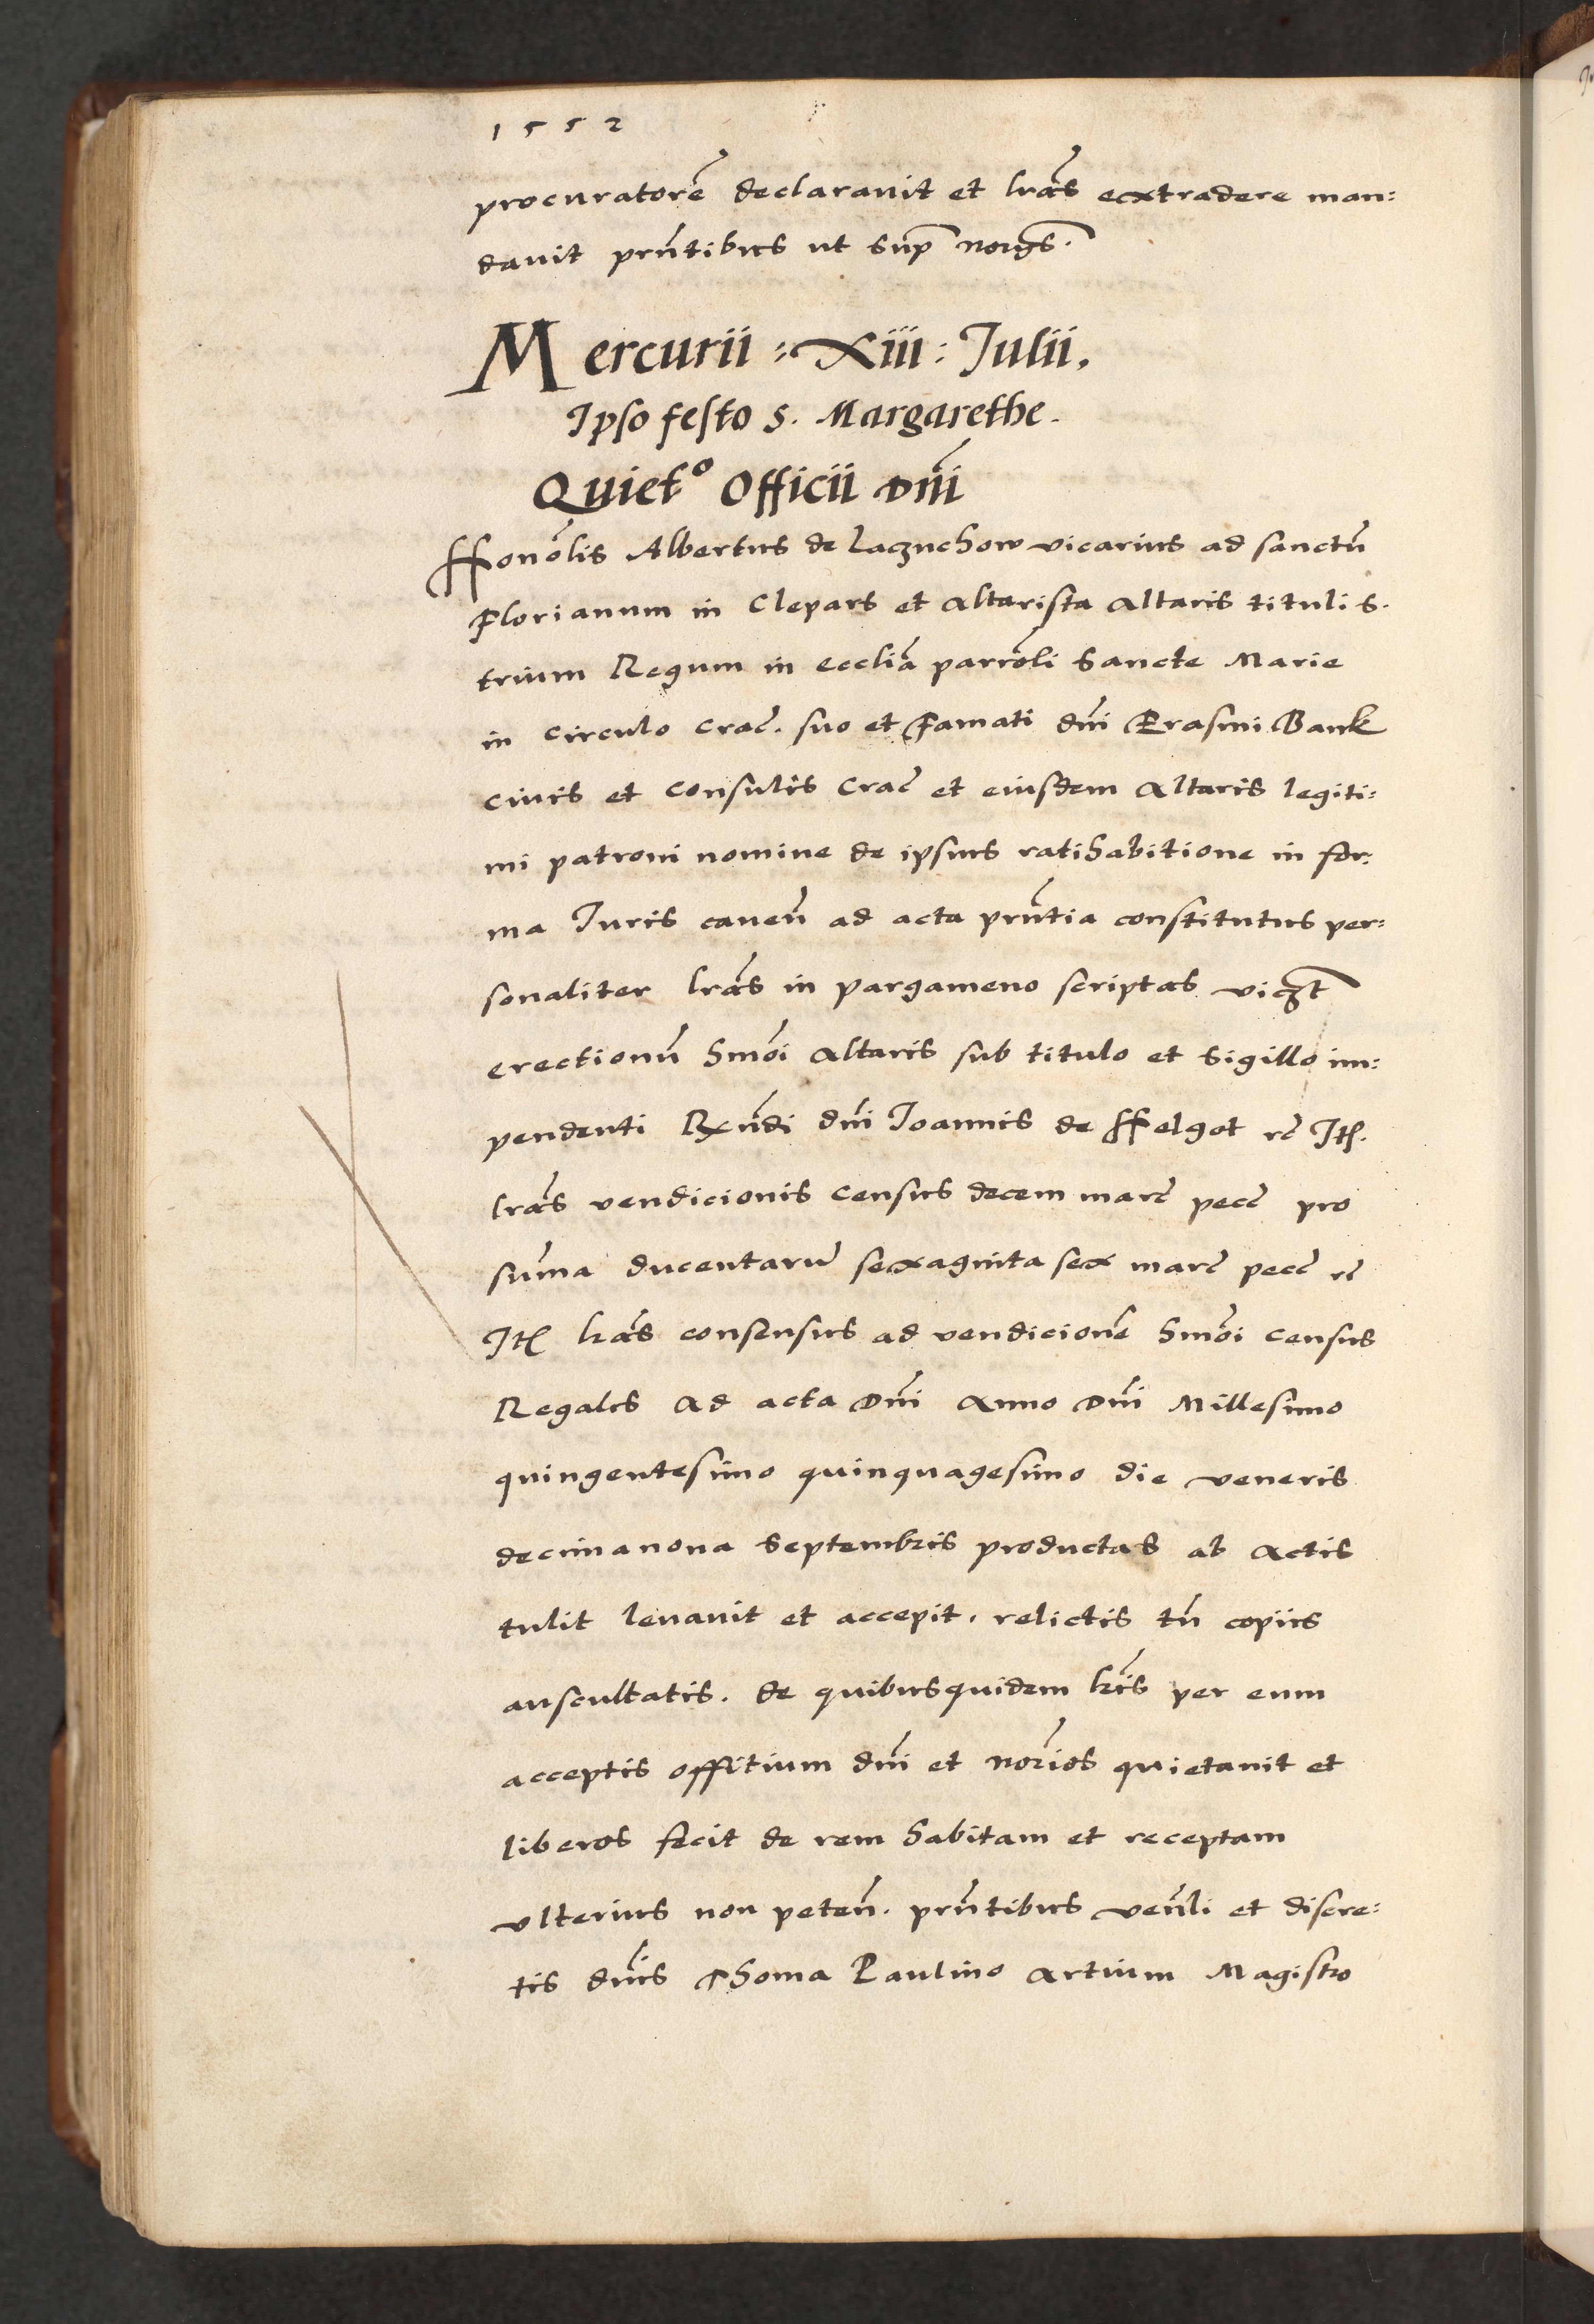 1552
procuratorē declaravit et lrās extradere man:
davit prñtibus ut sup̄ norgs.
Mercurii : Xiii : Julii,
Ipso festo s. Margarethe.
Quietº Officii Dñi
Honōlis Albertus de Laczuchow vicarius ad sanctū
Florianum in Clepars et Altarista Altaris tituli s.
trium Regum in ecclīa parrōli Sancte Marie
in circulo Crac̄. suo et Famati dñi Erasmi Bank
civis et consulis Crac̄ et eiusdem Altaris legiti:
mi patroni nomine de ipsius ratihabitione in for:
ma Iuris caveñ ad acta prñtia constitutus per:
sonaliter lrās in pargameno scriptas viczt
erectionū hmōi Altaris sub titulo et sigillo im:
pendenti Rx̄ndi dñi Joannis de Helgot rc̄ Itꝭ.
lrās vendicionis census decem marc̄ pecc̄ pro
sum̄a ducentarū sexaginta sex marc̄ pecc̄ rc̄
Itꝭ lrās consensus ad vendicionē hmōi census
Regalis Ad acta Dñi Anno Dñi Millesimo
quingentesimo quinquagesimo die veneris
decimanona Septembris productas ab Actis
tulit levavit et accepit. relictis tñ copiis
auscultatis. de quibusquidem lrīs per eum
acceptis offitium dñi et norīos quietavit et
liberos fecit de rem habitam et receptam
ulterius non peteñ. prñtibus veñli et discre:
tis dñis Thoma Paulino Artium Magistro